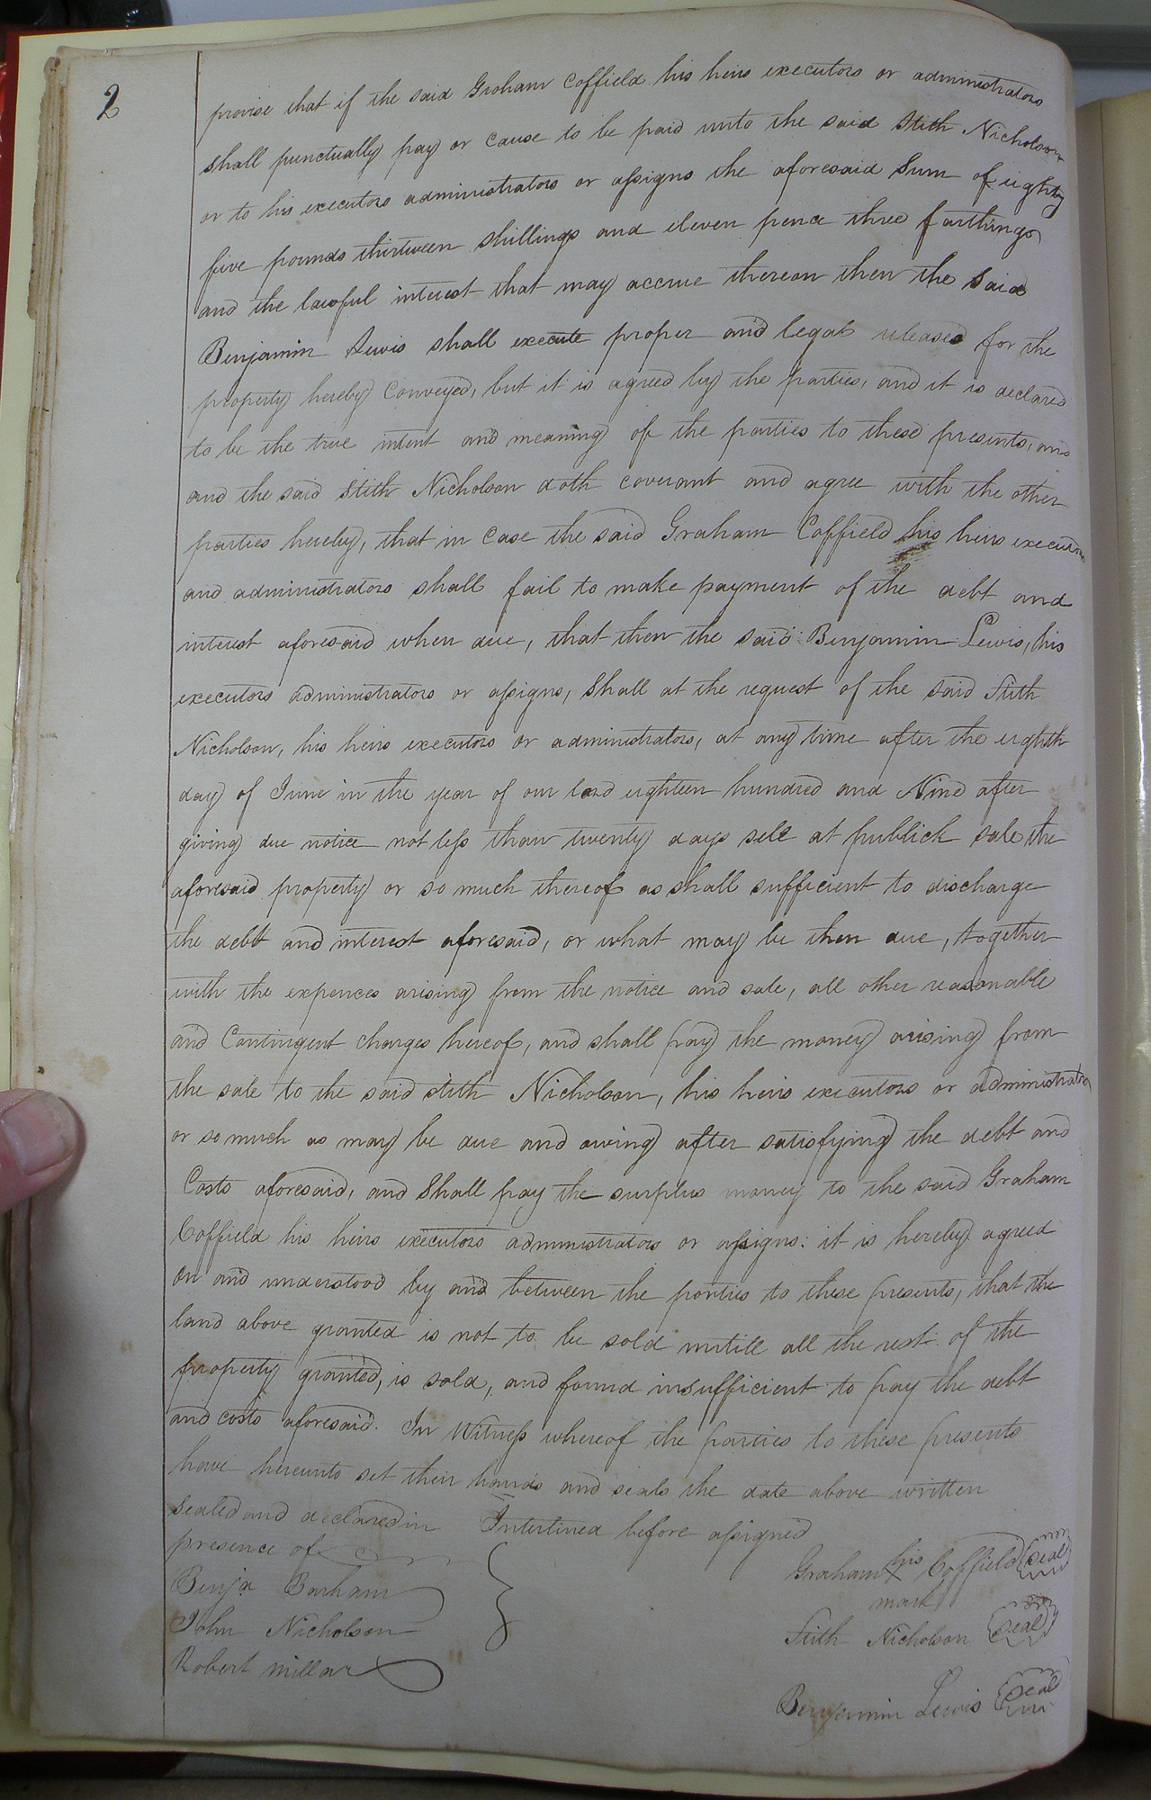 2
provise that if the said Graham Coffield his heirs executors or administrators
shall punctually pay or cause to be paid unto the said Stith Nicholson
or to his executors administrators or assigns the aforesaid Sum of eighty
five pounds thirteen shillings and eleven pence three farthings
and the lawful interest that may accrue thereon then the said
Benjamin Lewis shall execute proper and legal releases for the
property hereby Conveyed, but it is agreed by the parties, and it is declared
to be the true intent and meaning of the parties to these presents, and
and the said Stith Nicholson doth covenant and agree with the other
parties hereby, that in Case the said Graham Coffield his heirs executors
and administrators shall fail to make payment of the debt and
interest aforesaid when due, that then the said Benjamin Lewis, his
executors administrators or assigns, shall at the request of the said Stith
Nicholson, his heirs executors or administrators, at any time after the eighth
day of June in the year of our lord eighteen hundred and Nine after
giving due notice not less than twenty days sell at publick sale the
aforesaid property or so much thereof as shall sufficient to discharge
the debt and interest aforesaid, or what may be then due, together
with the expences arising from the notice and sale, all other reasonable
and Contingent charges hereof, and shall pay the money arising from
the sale to the said Stith Nicholson, his heirs executors or administrators
or so much as may be due and owing after satisfying the debt and
Costs aforesaid, and Shall pay the surplus money to the said Graham
Coffield his heirs executors administrators or assigns: it is hereby agreed
on and understood by and between the parties to these presents, that the
land above granted is not to be sold untill all the rest of the
property granted, is sold, and found insufficient to pay the debt
and costs aforesaid. In Witness whereof the parties to these presents
have hereunto set their hands and seals the date above written
Sealed and declared in Interlined before assigned
presence of
Graham his Coffield Seal
mark
Benja Barham
John Nicholson
Stith Nicholson Seal
Robert Millar
Benjamin Lewis Seal